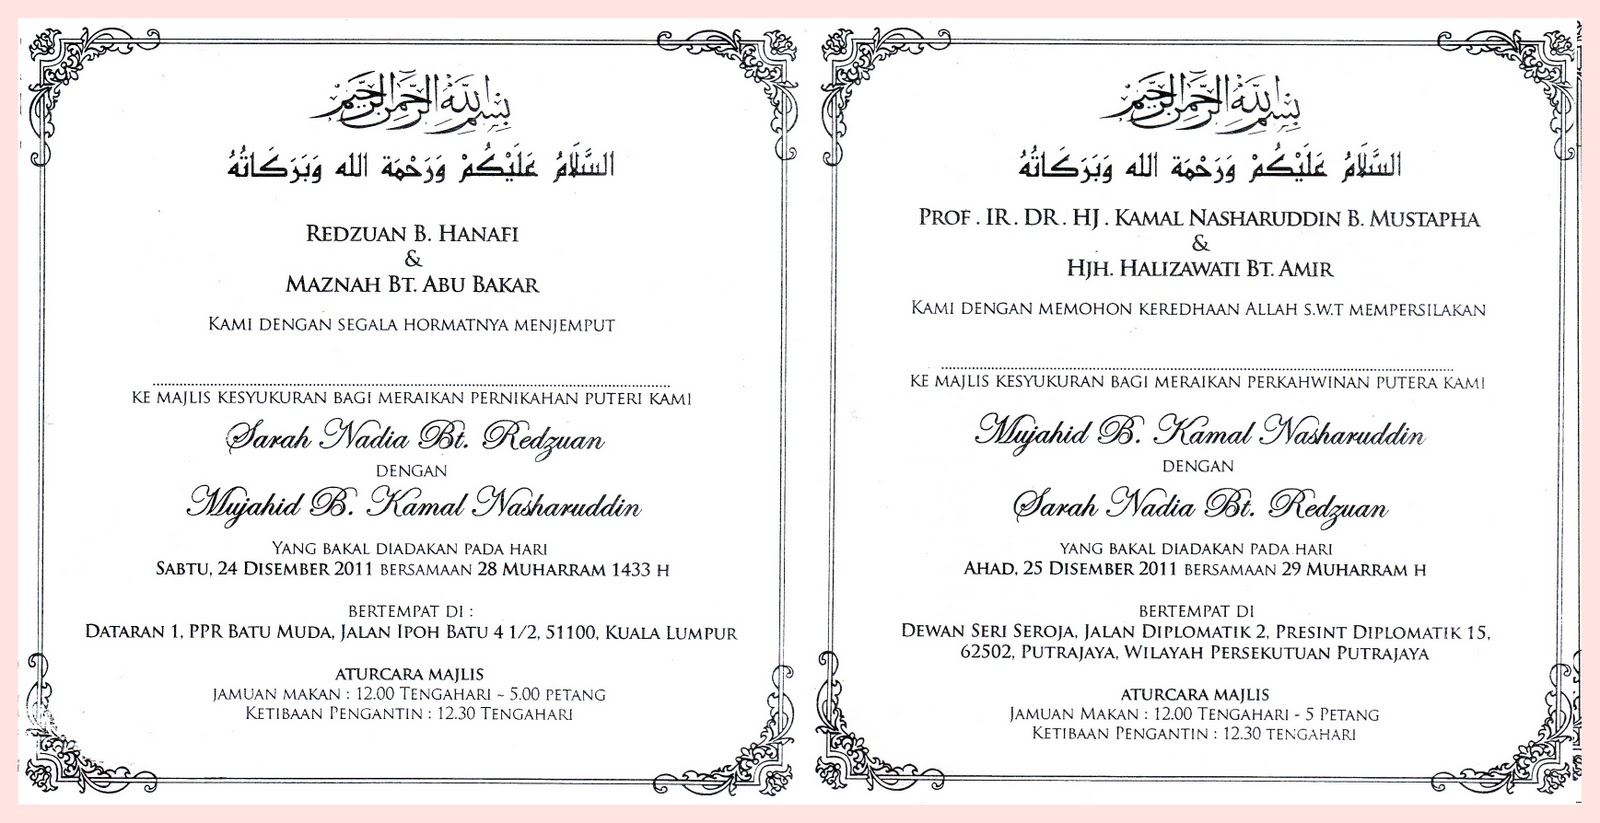 بسم الله الرحمن الرحيم
السَّلَامُ عَلَيْكُمْ وَرَحْمَة الله وَبَرَكَاتُهُ
REDZUAN B. HANAFI
&
MAZNAH BT. ABU BAKAR
KAMI DENGAN SEGALA HORMATNYA MENJEMPUT
KE MAJLIS KESYUKURAN BAGI MERAIKAN PERNIKAHAN PUTERI KAMI
Sarah Nadia Bt. Redzuan
DENGAN
Mujahid B. Kamal Nasharuddin
YANG BAKAL DIADAKAN PADA HARI
SABTU, 24 DISEMBER 2011 BERSAMAAN 28 MUHARRAM 1433 H
BERTEMPAT DI :
DATARAN 1, PPR BATU MUDA, JALAN IPOH BATU 4 1/2, 51100, KUALA LUMPUR
ATURCARA MAJLIS
JAMUAN MAKAN : 12.00 TENGAHARI ~ 5.00 PETANG
KETIBAAN PENGANTIN : 12.30 TENGAHARI
بسم الله الرحمن الرحيم
السَّلَامُ عَلَيْكُمْ وَرَحْمَة الله وَبَرَكَاتُهُ
PROF . IR . DR . HJ . KAMAL NASHARUDDIN B. MUSTAPHA
&
HJH. HALIZAWATI BT. AMIR
KAMI DENGAN MEMOHON KEREDHAAN ALLAH S.W.T MEMPERSILAKAN
KE MAJLIS KESYUKURAN BAGI MERAIKAN PERKAHWINAN PUTERA KAMI
Mujahid B. Kamal Nasharuddin
DENGAN
Sarah Nadia Bt. Redzuan
YANG BAKAL DIADAKAN PADA HARI
AHAD, 25 DISEMBER 2011 BERSAMAAN 29 MUHARRAM H
BERTEMPAT DI
DEWAN SERI SEROJA, JALAN DIPLOMATIK 2, PRESINT DIPLOMATIK 15,
62502, PUTRAJAYA, WILAYAH PERSEKUTUAN PUTRAJAYA
ATURCARA MAJLIS
JAMUAN MAKAN : 12.00 TENGAHARI - 5 PETANG
KETIBAAN PENGANTIN : 12.30 TENGAHARI